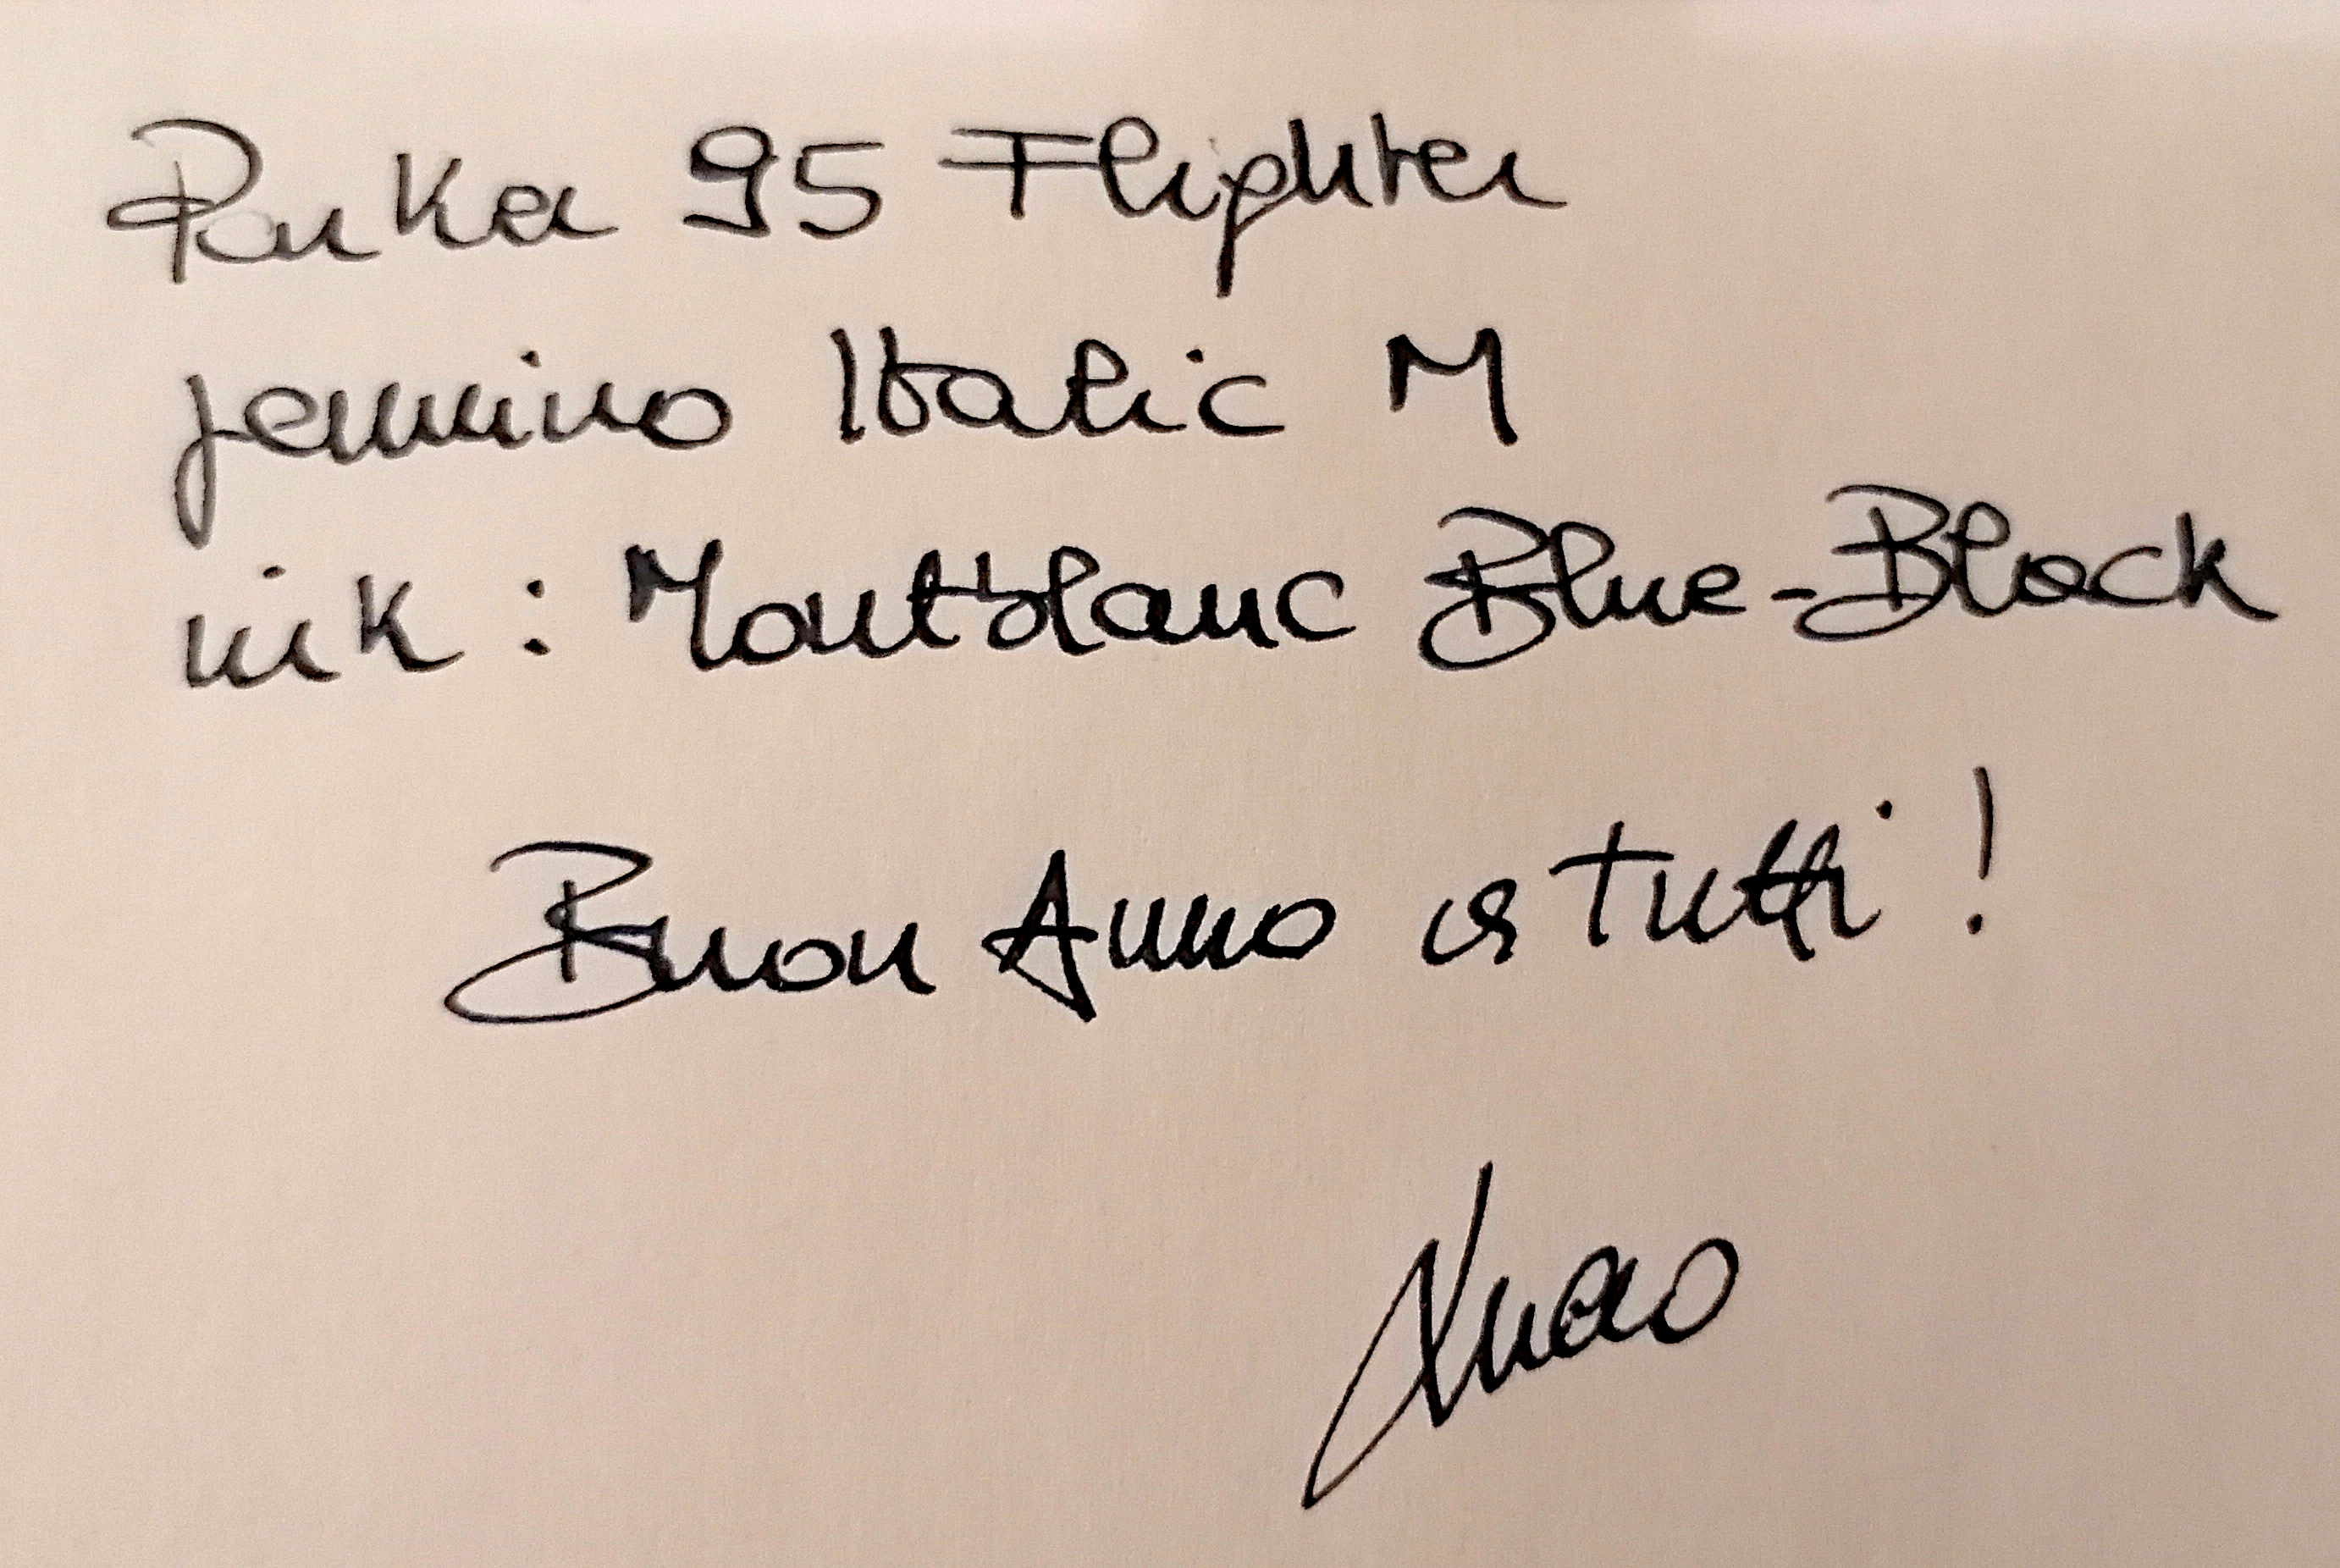 Parker 95 Flighter
pennino Italic M
ink : Montblanc Blue-Black
Buon Anno a tutti !